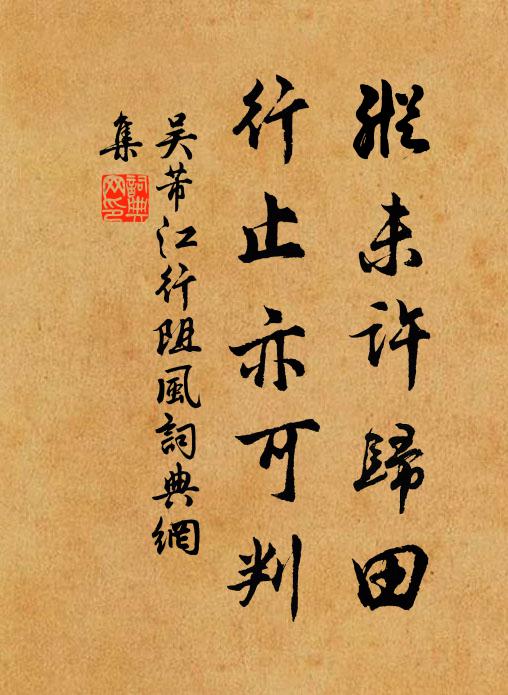 縱未許歸田
行止亦可判
吳芾江行阻風詞典網
集
詞典
网印